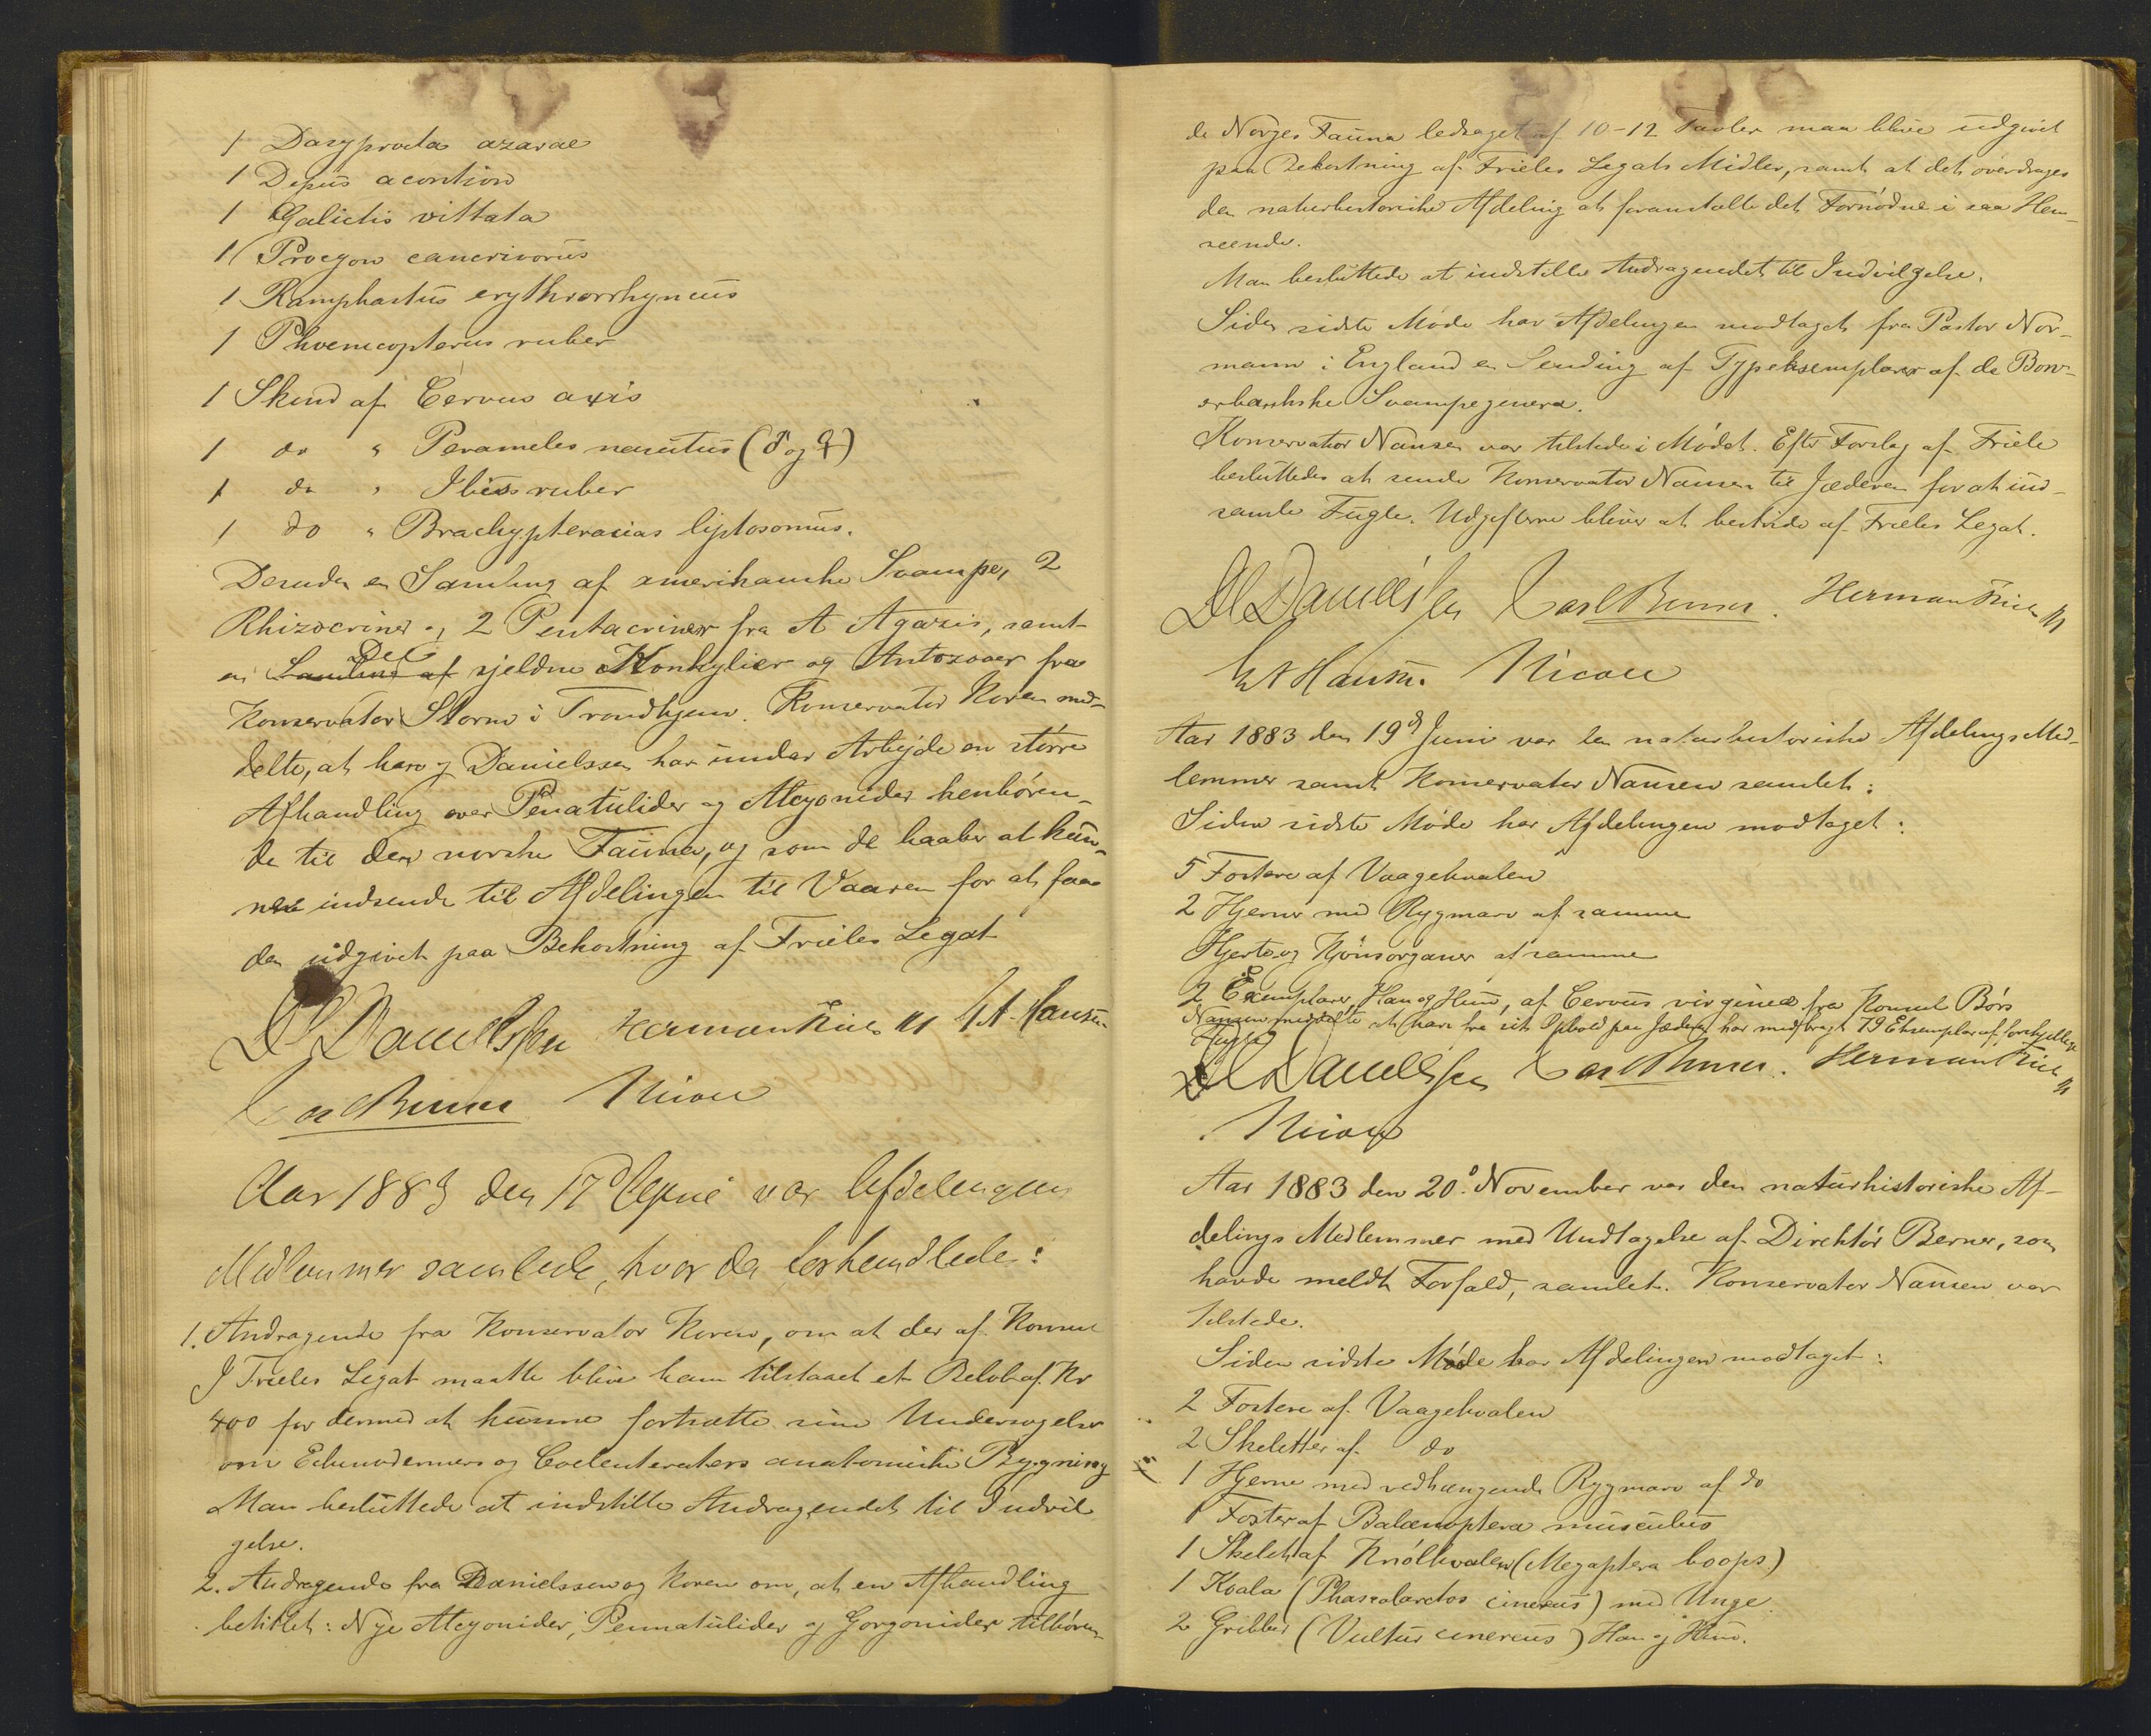 1 Dasyprocta azarae
1 Depus acontion
1 Galictis vittata
1 Procyon cancrivorus
1 Ramphastus erythrorrhyncus
1 Phoenicopterus ruber
1 Skind af Cervus axis
1 do " Perameles nasutus (♂ og ♀)
1 do " Ibis ruber
1 do " Brachypteracias liptosomus.
Desuden en Samling af amerikanske Svampe, 2
Rhizocriner og 2 Pentacriner fra A Agassis, samt
en Samling af Del sjeldne Konkylier og Antozoaer fra
Konservator Storm i Trondhjem. Konservator Koren med-
delte, at han og Danielssen har under Arbejde en större
Afhandling over Penatulider og Alcyonider henhören-
de til den norske Fauna, og som de haaber at kun-
ne indsende til Afdelingen til Vaaren for at faa
den udgivet paa Bekostning af Frieles Legat
D C Danielssen Herman Friele G A Hansen
Carl Berner Nicoll
Aar 1883 den 17d April var Afdelingens
Medlemmer samlede, hvor da forhandledes:
1. Andragende fra Konservator Koren, om at der af Konsul
J Frieles Legat maatte blive ham tilstaaet et Beløb af Kr
400 for dermed at kunne fortsætte sine Undersøgelser
om Echinodermers og Coelenteraters anatomiske Bygning
Man besluttede at indstille Andragendet til Indvil
gelse.
2. Andragende fra Danielssen og Koren om, at en Afhandling
betitlet: Nye Alcyonider, Pennatulider og Gorgonider tilhören-
de Norges Fauna ledsaget af 10-12 Tavler maa blive udgivet
paa Bekostning af Frieles Legats Midler, samt at det overdrages
den naturhistoriske Afdeling at foranstalte det Fornödne i saa Hen-
seende.
Man besluttede at indstille Andragendet til Indvilgelse.
Siden sidste Möde har Afdelingen modtaget fra Pastor Nor-
mann i England en Sending af Typeksemplarer af de Bow-
erbankske Svampegenera.
Konservator Nansen var tilstede i Mödet. Efter Forslag af Friele
besluttedes at sende Konservator Nansen til Jæderen for at ind-
samle Fugle. Udgifterne bliver at bestride af Frieles Legat.
D C Danielssen Carl Berner. Herman Friele
G A Hansen. Nicoll
Aar 1883 den 19d Juni var den naturhistoriske Afdelings Med-
lemmer samt Konservator Nansen samlet:
Siden sidste Möde har Afdelingen modtaget:
5 Fostere af Vaagehvalen
2 Hjerner med Rygmarv af samme
Hjerte og Kjönsorganer af samme
2 Exemplarer, Han og Hun, af Cervus virginea fra Konsul Börs
Nansen meddelte at han fra sit Ophold paa Jæderen har medbragt 79 Eksemplar af forskjellige
Fugle
D C Danielssen Carl Berner. Herman Friele
Nicoll
Aar 1883 den 20d November var den naturhistoriske Af-
delings Medlemmer med Undtagelse af Direktör Berner, som
havde meldt Forfald, samlet. Konservator Nansen var
tilstede.
Siden sidste Möde har Afdelingen modtaget:
2 Fostere af Vaagehvalen
2 Skeletter af do
1 Hjerne med vedhængende Rygmarv af do
1 Foster af Balænoptera musculus
1 Skelet af Knölhvalen (Megaptera boops)
1 Koala (Phascolarctos cinereus) med Unge
2 Gribber (Vultur cinereus) Han og Hun.